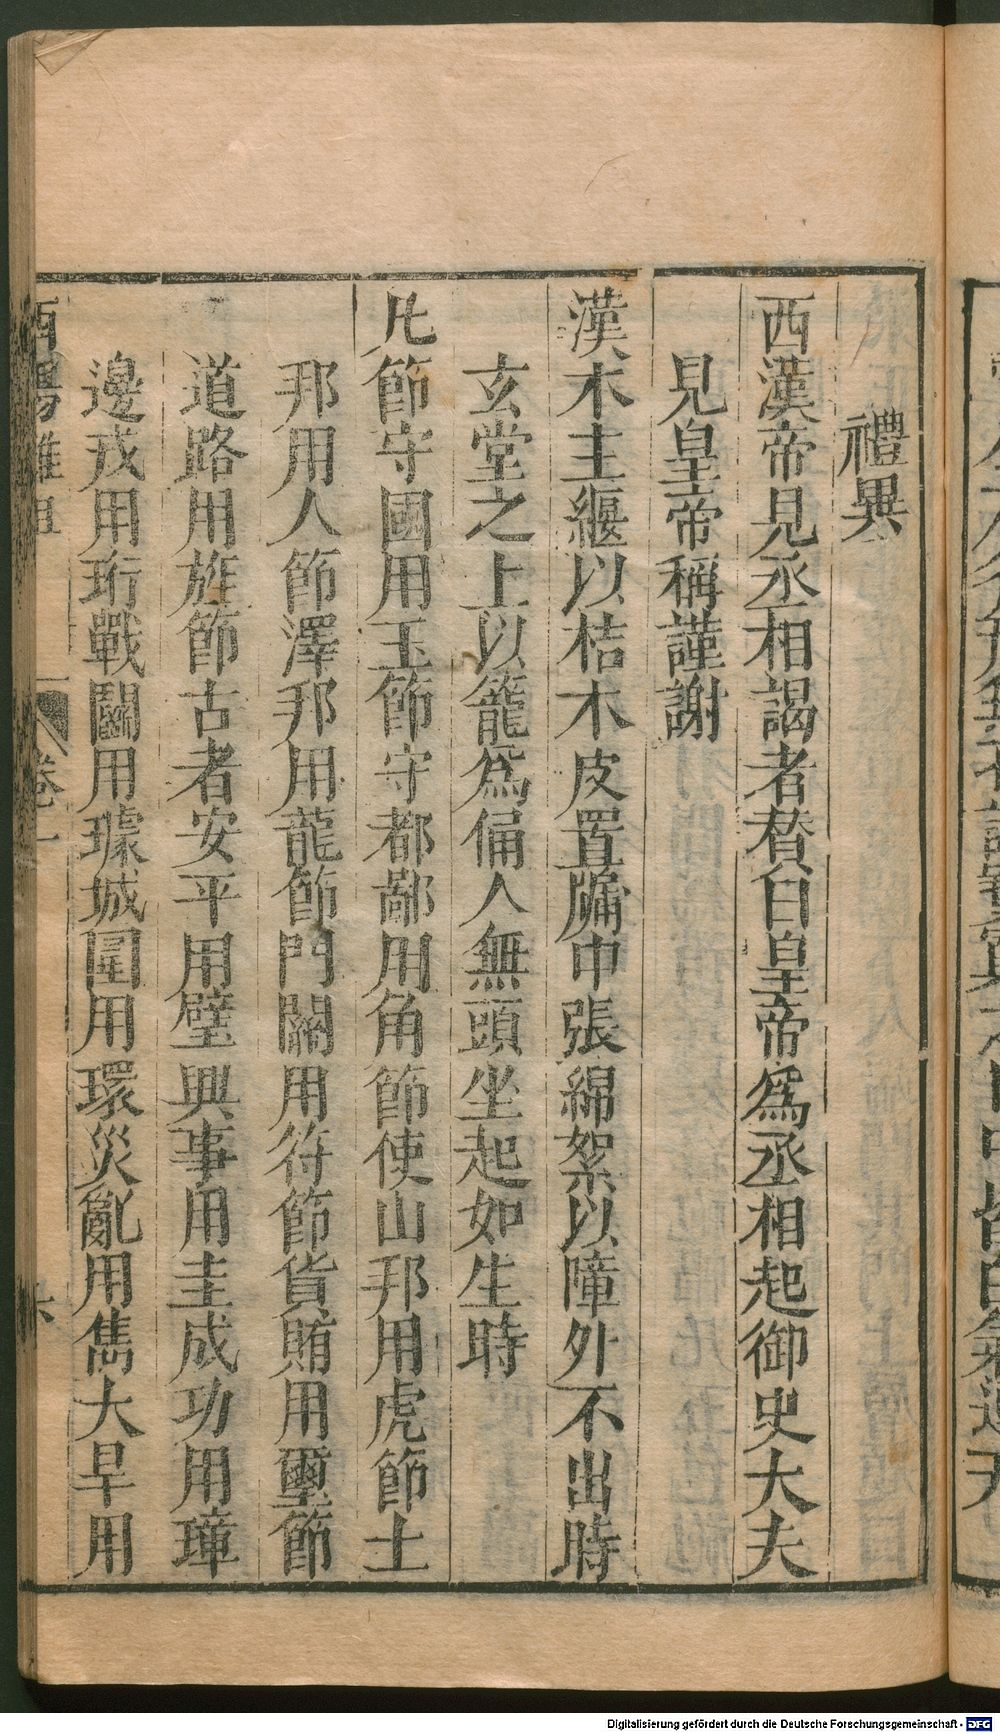 禮異
西漢帝見丞相謁者賛曰皇帝爲丞相起御史大夫
見皇帝稱謹謝
漢木主纏以桔木皮置牖中張綿絮以障外不出時
玄堂之上以籠爲俑人無頭坐起如生時
凡節守國用玉節守都鄙用角節使山邦用虎節土
邦用人節澤邦用龍節門關用符節貨賄用璽節
道路用旌節古者安平用璧興事用圭成功用璋
邊戎用珩戰鬬用璩城圍用環災亂用雋大旱用
酉陽雜俎 卷一 六
Digitalisierung gefördert durch die Deutsche Forschungsgemeinschaft - DFG